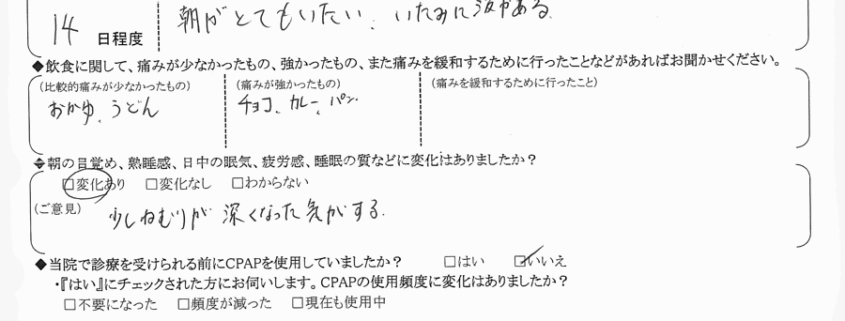 14 日程度 朝がとてもいたい、いたみに波がある
◆飲食に関して、痛みが少なかったもの、強かったもの、また痛みを緩和するために行ったことなどがあればお聞かせください。
(比較的痛みが少なかったもの) (痛みが強かったもの) (痛みを緩和するために行ったこと)
おかゆ、うどん チョコ、カレー、パン
◆朝の目覚め、熟睡感、日中の眠気、疲労感、睡眠の質などに変化はありましたか?
□変化あり □変化なし □わからない
(ご意見) 少しねむりが深くなった気がする
◆当院で診療を受けられる前にCPAPを使用していましたか? □はい ☑いいえ
・『はい』にチェックされた方にお伺いします。CPAPの使用頻度に変化はありましたか?
□不要になった □頻度が減った □現在も使用中